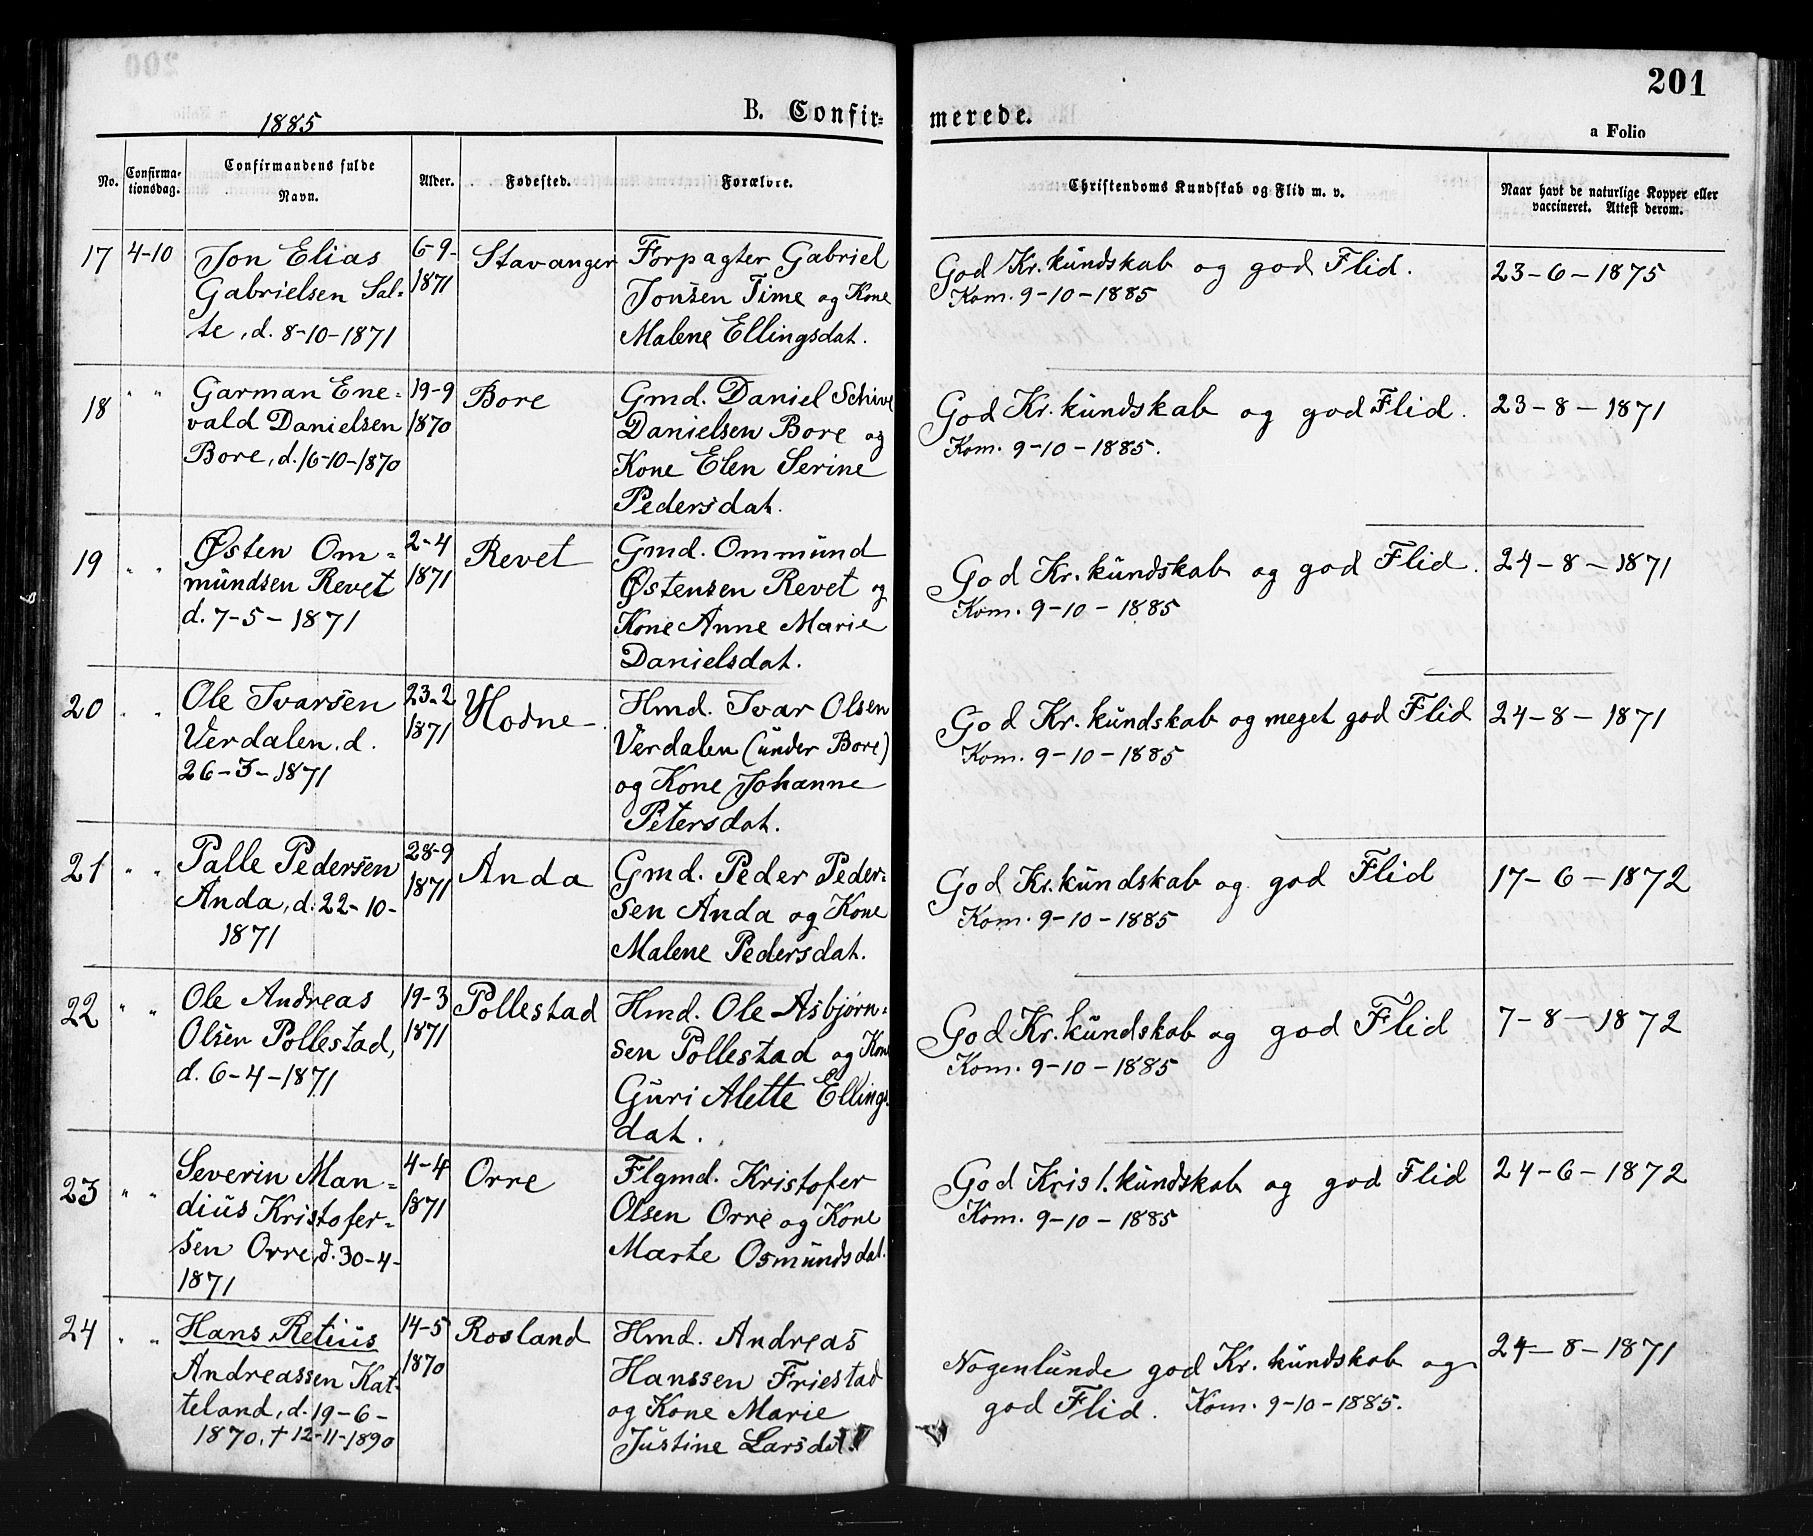 200
201
1885
B. Confir=
merede.
a Folio
No.
Confirma-
tionsdag.
Confirmandens fulde
Navn.
Alder.
Fødested.
Forældre.
Christendoms Kundskab og Flid m. v.
Naar havt de naturlige Kopper eller
vaccineret. Attest derom.
17 4-10
Jon Elias
Gabrielsen Sal-
te, d. 8-10-1871
6-9-
1871
Stavanger
Forpagter Gabriel
Jonsen Time og Kone
Malene Ellingsdat.
God Kr. kundskab og god Flid.
Kom. 9-10-1885
23-6-1875
18 " "
Garman Ene=
vald Danielsen
Bore, d. 16-10-1870
19-9
1870
Bore
Gmd. Daniel Schive
Danielsen Bore og
Kone Elen Serine
Pedersdat.
God Kr. kundskab og god Flid.
Kom. 9-10-1885.
23-8-1871
19 " "
Østen Om=
mundsen Revet
d. 7-5-1871
2-4
1871
Revet
Gmd. Ommund
Østensen Revet og
Kone Anne Marie
Danielsdat.
God Kr. kundskab og god Flid.
Kom. 9-10-1885
24-8-1871
20 " "
Ole Ivarsen
Verdalen, d.
26-3-1871
23-2
1871
Hodne
Hmd. Ivar Olsen
Verdalen (under Bore)
og Kone Johanne
Petersdat.
God Kr. kundskab og meget god Flid
Kom. 9-10-1885
24-8-1871
21 " "
Palle Pedersen
Anda, d. 22-10-
1871
28-9
1871
Anda
Gmd. Peder Peder=
sen Anda og Kone
Malene Pedersdat.
God Kr. kundskab og god Flid
Kom. 9-10-1885
17-6-1872
22 " "
Ole Andreas
Olsen Pollestad,
d. 6-4-1871
19-3
1871
Pollestad
Hmd. Ole Asbjørn=
sen Pollestad og Kone
Guri Alette Ellings
dat.
God Kr. kundskab og god Flid
Kom. 9-10-1885
7-8-1872
23 " "
Severin Man=
dius Kristofer=
sen Orre, d. 30-4-
1871
4-4
1871
Orre
Flgmd. Kristofer
Olsen Orre og Kone
Marte Osmundsdat.
God Krist. kundskab og god Flid
Kom. 9-10-1885
24-6-1872
24 " "
Hans Retius
Andreassen Kat-
teland, d. 19-6-
1870. † 12-11-1890
14-5
1870
Rosland
Hmd. Andreas
Hanssen Friestad
og Kone Marie
Justine Larsdat.
Nogenlunde god Kr. kundskab og
god Flid. Kom. 9-10-1885.
24-8-1871